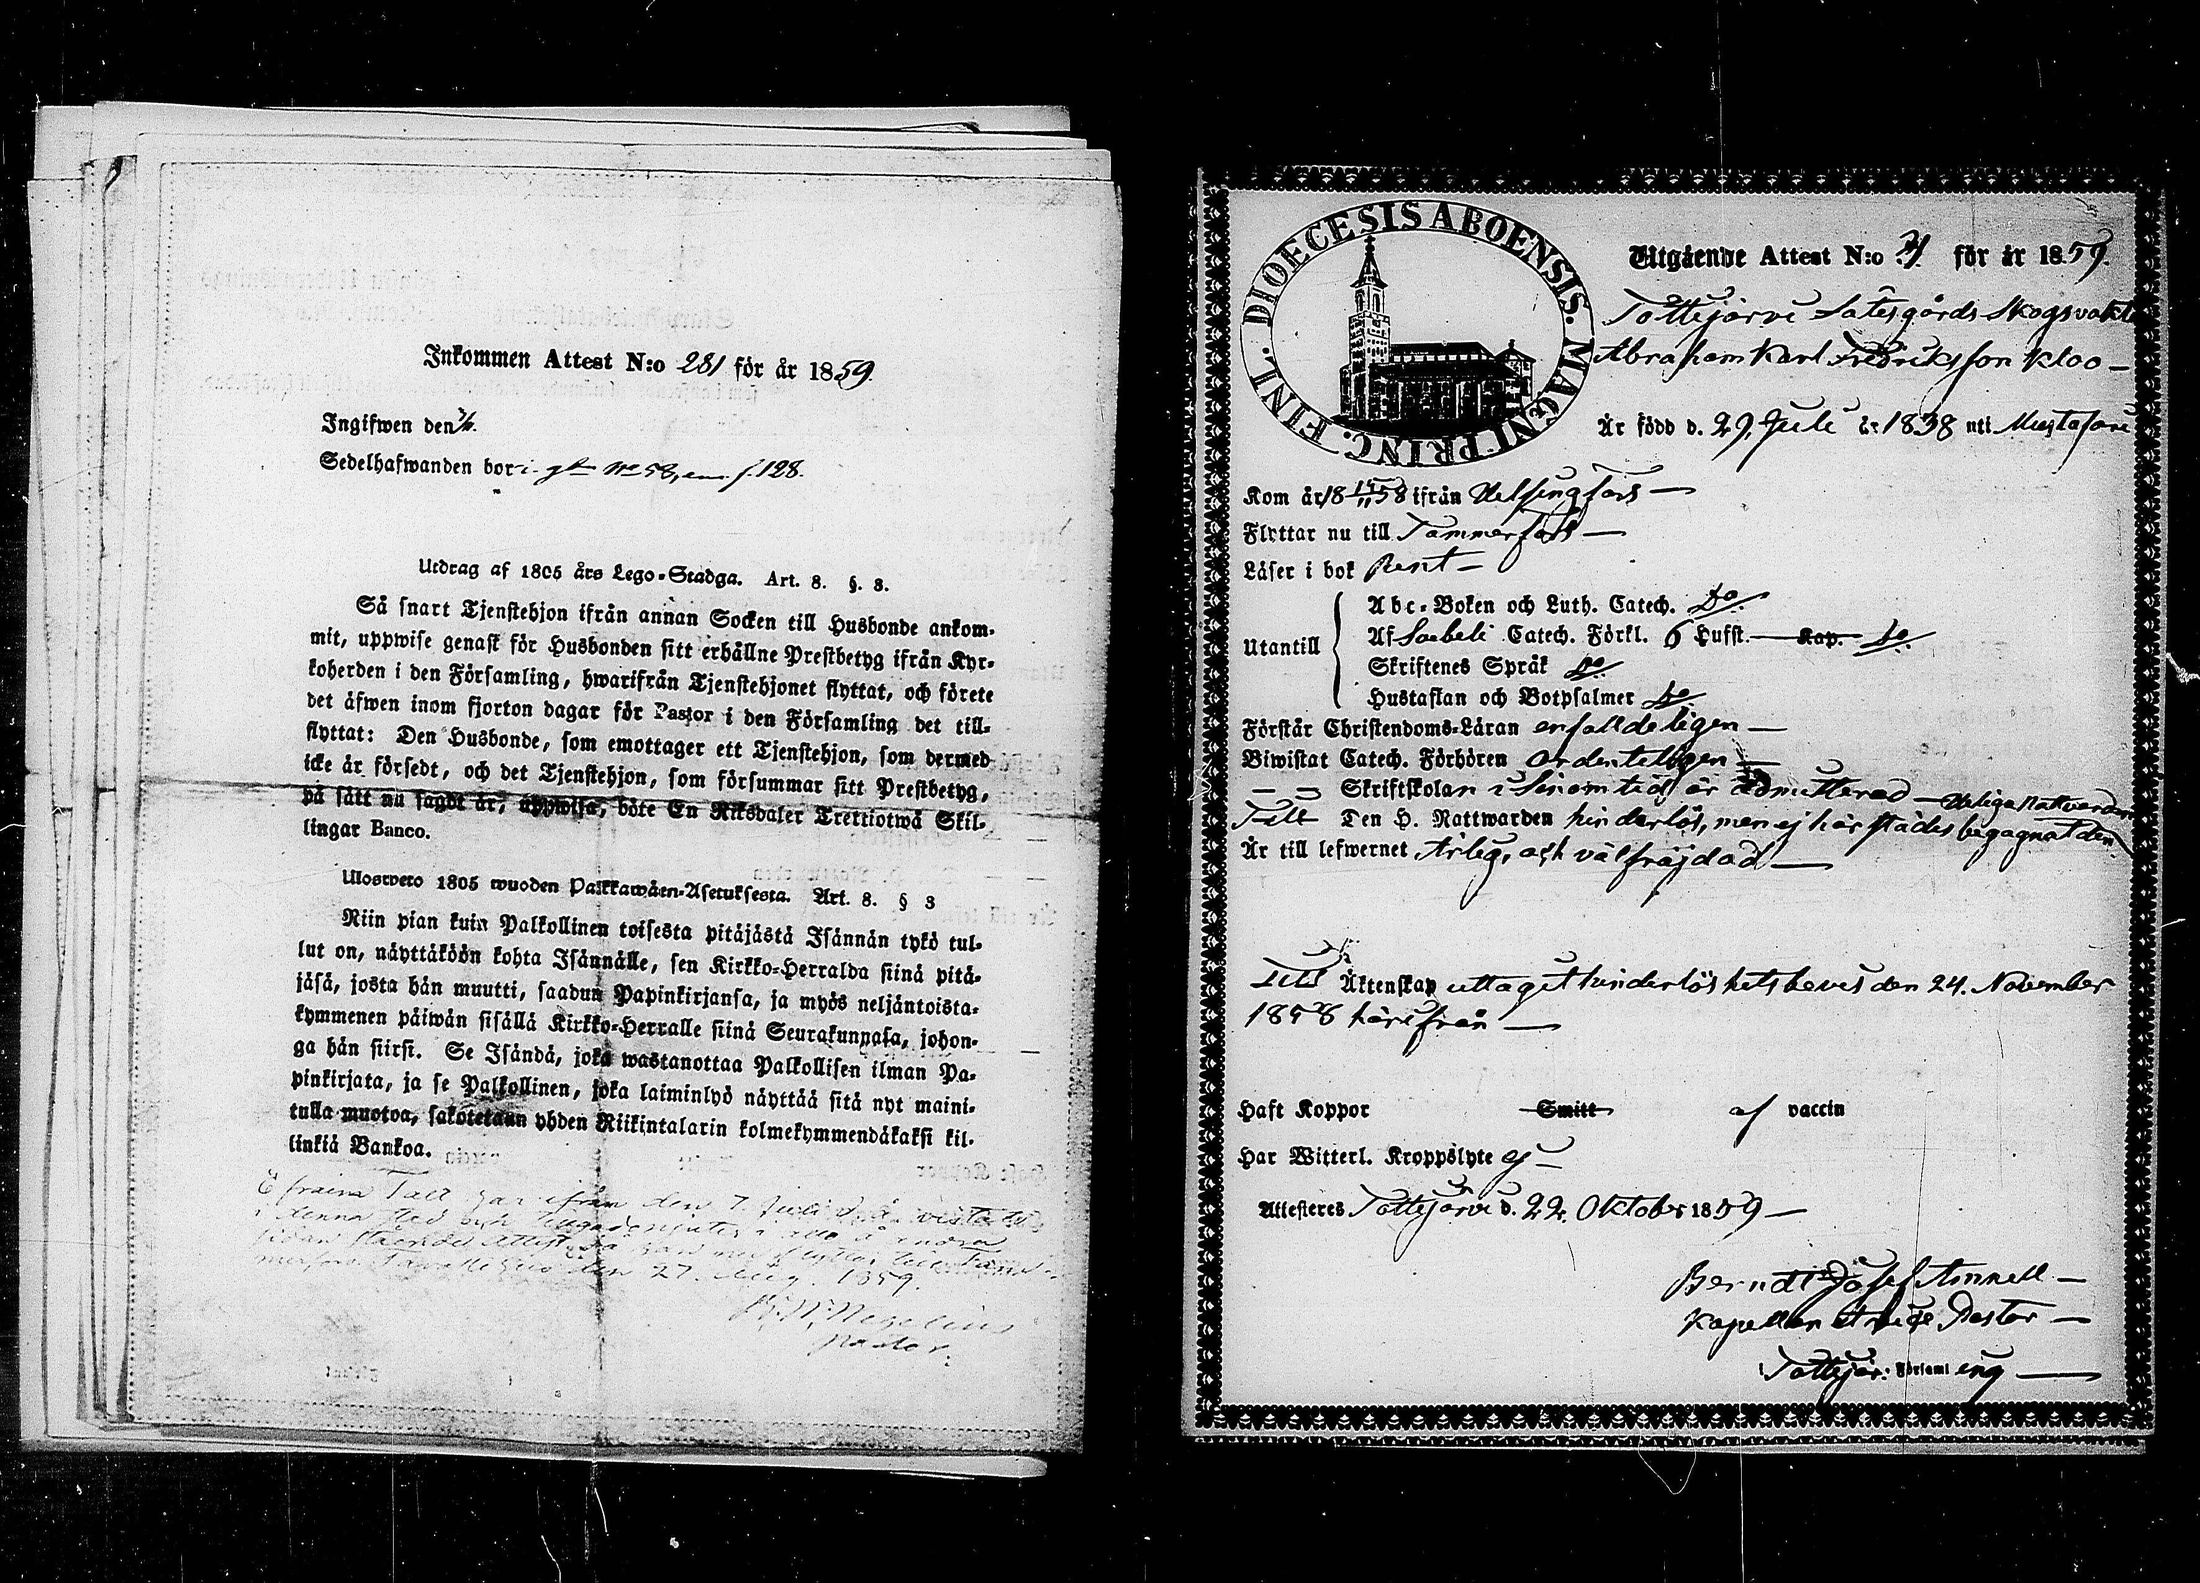 Inkommen Attest N:o 281 för år 1859.
Ingifwen den
Sedelhafwanden bor i gln No 58, f. 128.
Utdrag af 1805 års Lego-Stadga. Art. 8. §. 3.
Så snart Tjenstehjon ifrån annan Socken till Husbonde ankom-
mit, uppwise genast för Husbonden sitt erhållne Prestbetyg ifrån Kyr-
koherden i den Församling, hwarifrån Tjenstehjonet flyttat, och förete
det äfwen inom fjorton dagar för Pastor i den Församling det till-
flyttat: Den Husbonde, som emottager ett Tjenstehjon, som dermed
icke är försedt, och det Tjenstehjon, som försummar sitt Prestbetyg,
på sätt nu sagdt är, uppwisa, böte En Riksdaler Trettiotwå Skil-
lingar Banco.
Ulosweto 1805 wuoden Palkkawäen-Asetuksesta. Art. 8. § 3
Niin pian kuin Palkollinen toisesta pitäjästä Isännän tykö tul-
lut on, näyttäköön kohta Isännälle, sen Kirkko-Herralda siinä pitä-
jäsä, josta hän muutti, saadun Papinkirjansa, ja myös neljäntoista-
kymmenen päiwän sisällä Kirkko-Herralle siinä Seurakunnasa, johon-
ga hän siirsi. Se Isändä, joka wastanottaa Palkollisen ilman Pa-
pinkirjata, ja se Palkollinen, joka laiminlyö näyttää sitä nyt maini-
tulla muotoa, sakotetaan yhden Riikintalarin kolmekymmendäkaksi kil-
linkiä Bankoa.
Efraim Tall har ifrån den 7. Juli d. å. vistats
i denna stad och
sidan stående attest, då han nu flyttar till Tam-
merfors. Tavastehus den 27. Aug. 1859.
Pastor.
DIOECESIS ABOENSIS. MAGNI PRINC. FINL.
Utgående Attest N:o 21 för år 1859.
Tottejärvi Sätesgårds Skogsvakt
Abraham Karl Fredriksson Kloo
Är född d. 29. Juli år 1838 uti Mustasaari
Kom år 18 15/11 58 ifrån Helsingfors
Flyttar nu till Tammerfors
Läser i bok Rent
Utantill
Abc-Boken och Luth. Catech. do
Af Svebeli Catech. Förkl. 6 Hufst. Kap. do
Skriftenes Språk do
Hustaflan och Botpsalmer do
Förstår Christendoms-Läran enfaldeligen
Biwistat Catech. Förhören Ordenteligen
Skriftskolan i Sinom tid, är admitterad
Till Den H. Nattwarden hinderlös, men ej härstädes begagnat den Heliga Nattvarden
Är till lefwernet Ärlig, och välfräjdad
Till Äktenskap uttaget hinderlöshetsbevis den 24. November
1858 härifrån
Haft Koppor Smitt af vaccin
Har Witterl. Kroppslyte ej
Attesteras Tottejärvi d. 22. Oktober 1859
Berndt Josef Amnell
Kapellan et vice Pastor
Tottejär: Församl ing